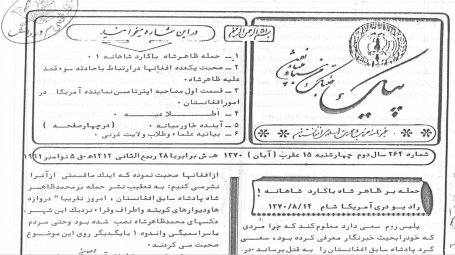 در این شماره میخوانید
۱ _ حمله ظاهرشاه باکارد شاهانه ۱۰
۲ _ صحبت یکعده افغانها در ارتباط با حادثه سوءقصد
علیه ظاهرشاه.
۳ _ قسمت اول مصاحبه اپترتامسن نماینده آمریکا در
امور افغانستان.
۴ _ اطلاعیه
۵ _ آینده خاورمیانه. (در چهار صفحه)
۶ _ بیانیه علما وطلاب ولایت غزنی.
شماره ۲۶۴ سال دوم چهارشنبه ۱۵ عقرب (آبان) ۱۳۷۰ هـ ش برابر با ۲۸ ربیع الثانی ۱۴۱۲ هـ ق ۵ نوامبر ۱۹۹۱
حمله بر ظاهر شاه باکارد شاهانه!
رادیو دری آمریکا شام ۱۳۷۰/۸/۱۴
پلیس روم سعی دارد معلوم کند که چرا مردی
که خود را بحیث خبرنگار معرفی کرده بود، سعی
کرد پادشاه سابق افغانستان را به قتل برساند. در
از افغانها صحبت نموده که اینک ماقسمتی از آنرا
نشر می کنیم: به تعقیب نشر حمله بر محمدظاهر
شاه پادشاه سابق افغانستان، امروز تقریبا" دروازه
ها ودیوارهای کویته واطراف وقرا؛ نزدیک این شهر،
عکسهای محمدظاهرشاه نصب شده بود وحتی مردم
باسراسیمگی واندوه با یکدیگر روی این موضوع
صحبت می کردند.